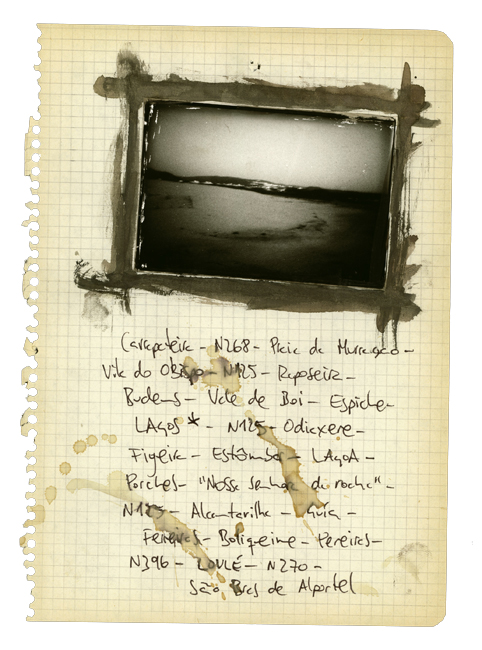 Carrapateira - N268 - Praia da Murração -
Vila do Obispo - N125 - Raposeira -
Budens - Vale de Boi - Espiche -
LAgos * - N125 - Odiaxere -
Figeira - Estômbar - LAgoA -
Porches - "Nossa senhora da rocha" -
N125 - Alcantarilha - Guia -
Ferreiras - Boliqueime - Pereiras -
N396 - LOULÉ - N270 -
São Bras de Alportel